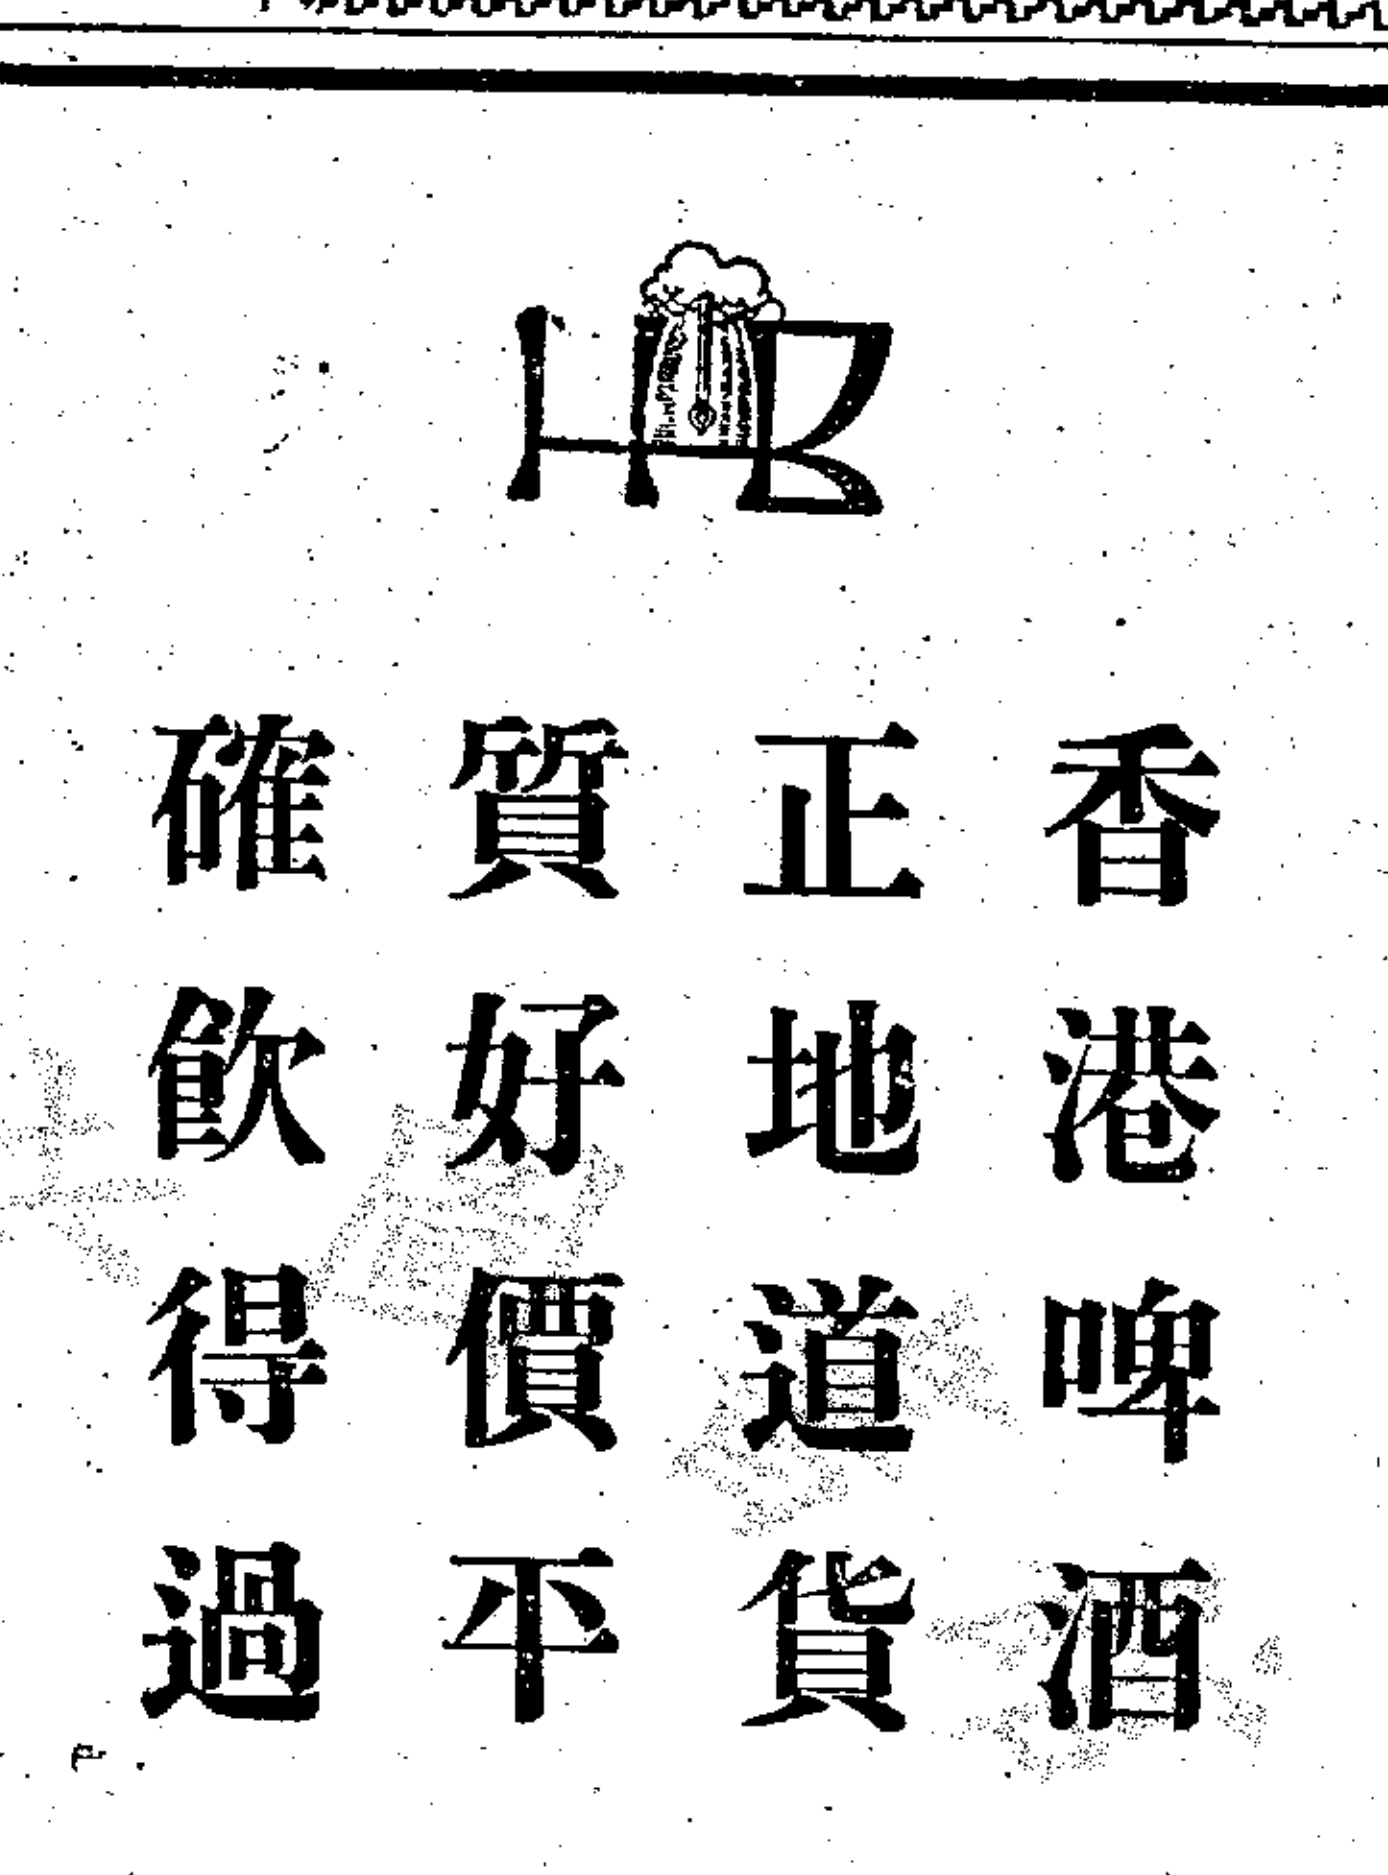 HB
香港啤酒
正地道貨
質好價平
確飲得過